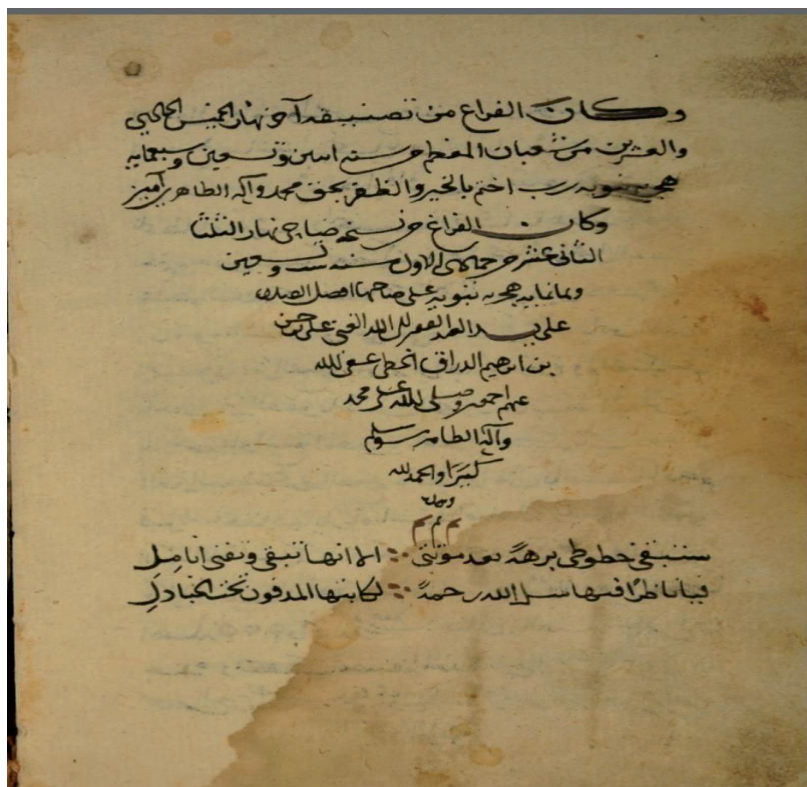 وكان الفراغ من تصنيفه آخر نهار الخميس الحادي
والعشرين من شعبان المعظم من سنه اسين وتسعين وسبعمايه
هجريه نبويه رب اختم بالخير والظفر بحق محمد وآله الطاهرين آمين
وكان الفراغ من نسخه ضاحي نهار الثلثا
الثاني عشر من جمادي الاول سنه ست وتسعين
وثمانمايه هجريه نبويه على صاحبها افضل الصلاه
على يد العبد الفقير الى الله الغني علي بن حسن
بن ابرهيم عفى الله
عنهم اجمعين وصلى الله على محمد
وآله الطاهرين وسلم
كثيرا والحمد لله
وحده
م م م
ستبقى خطوطي برهة بعد موتتي ∴ الا انها تبقى وتفنى اناملي
فيا ناظرا فيها سل الله رحمة ∴ لكاتبها المدفون تحت الجنادل